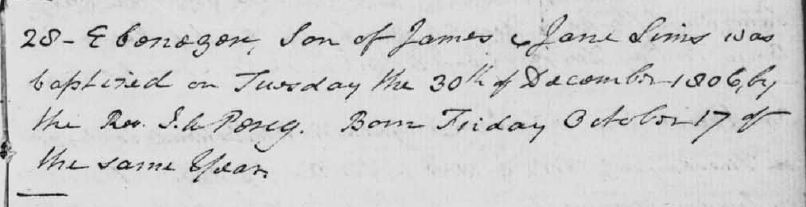 28 - Ebenezer, Son of James & Jane Sims was
baptized on Tuesday the 30th of December 1806, by
the Rev. Born Friday October 17 of
the same Year